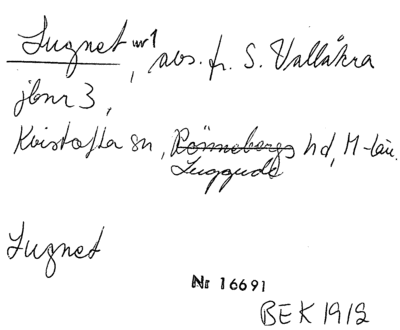 Lugnet nr 1, avs. fr. S. Vallåkra
jbnr 3,
Kvistofta sn, Rönnebergs hd, M-län.
Luggude
Lugnet
Nr 16691
BEK 1912